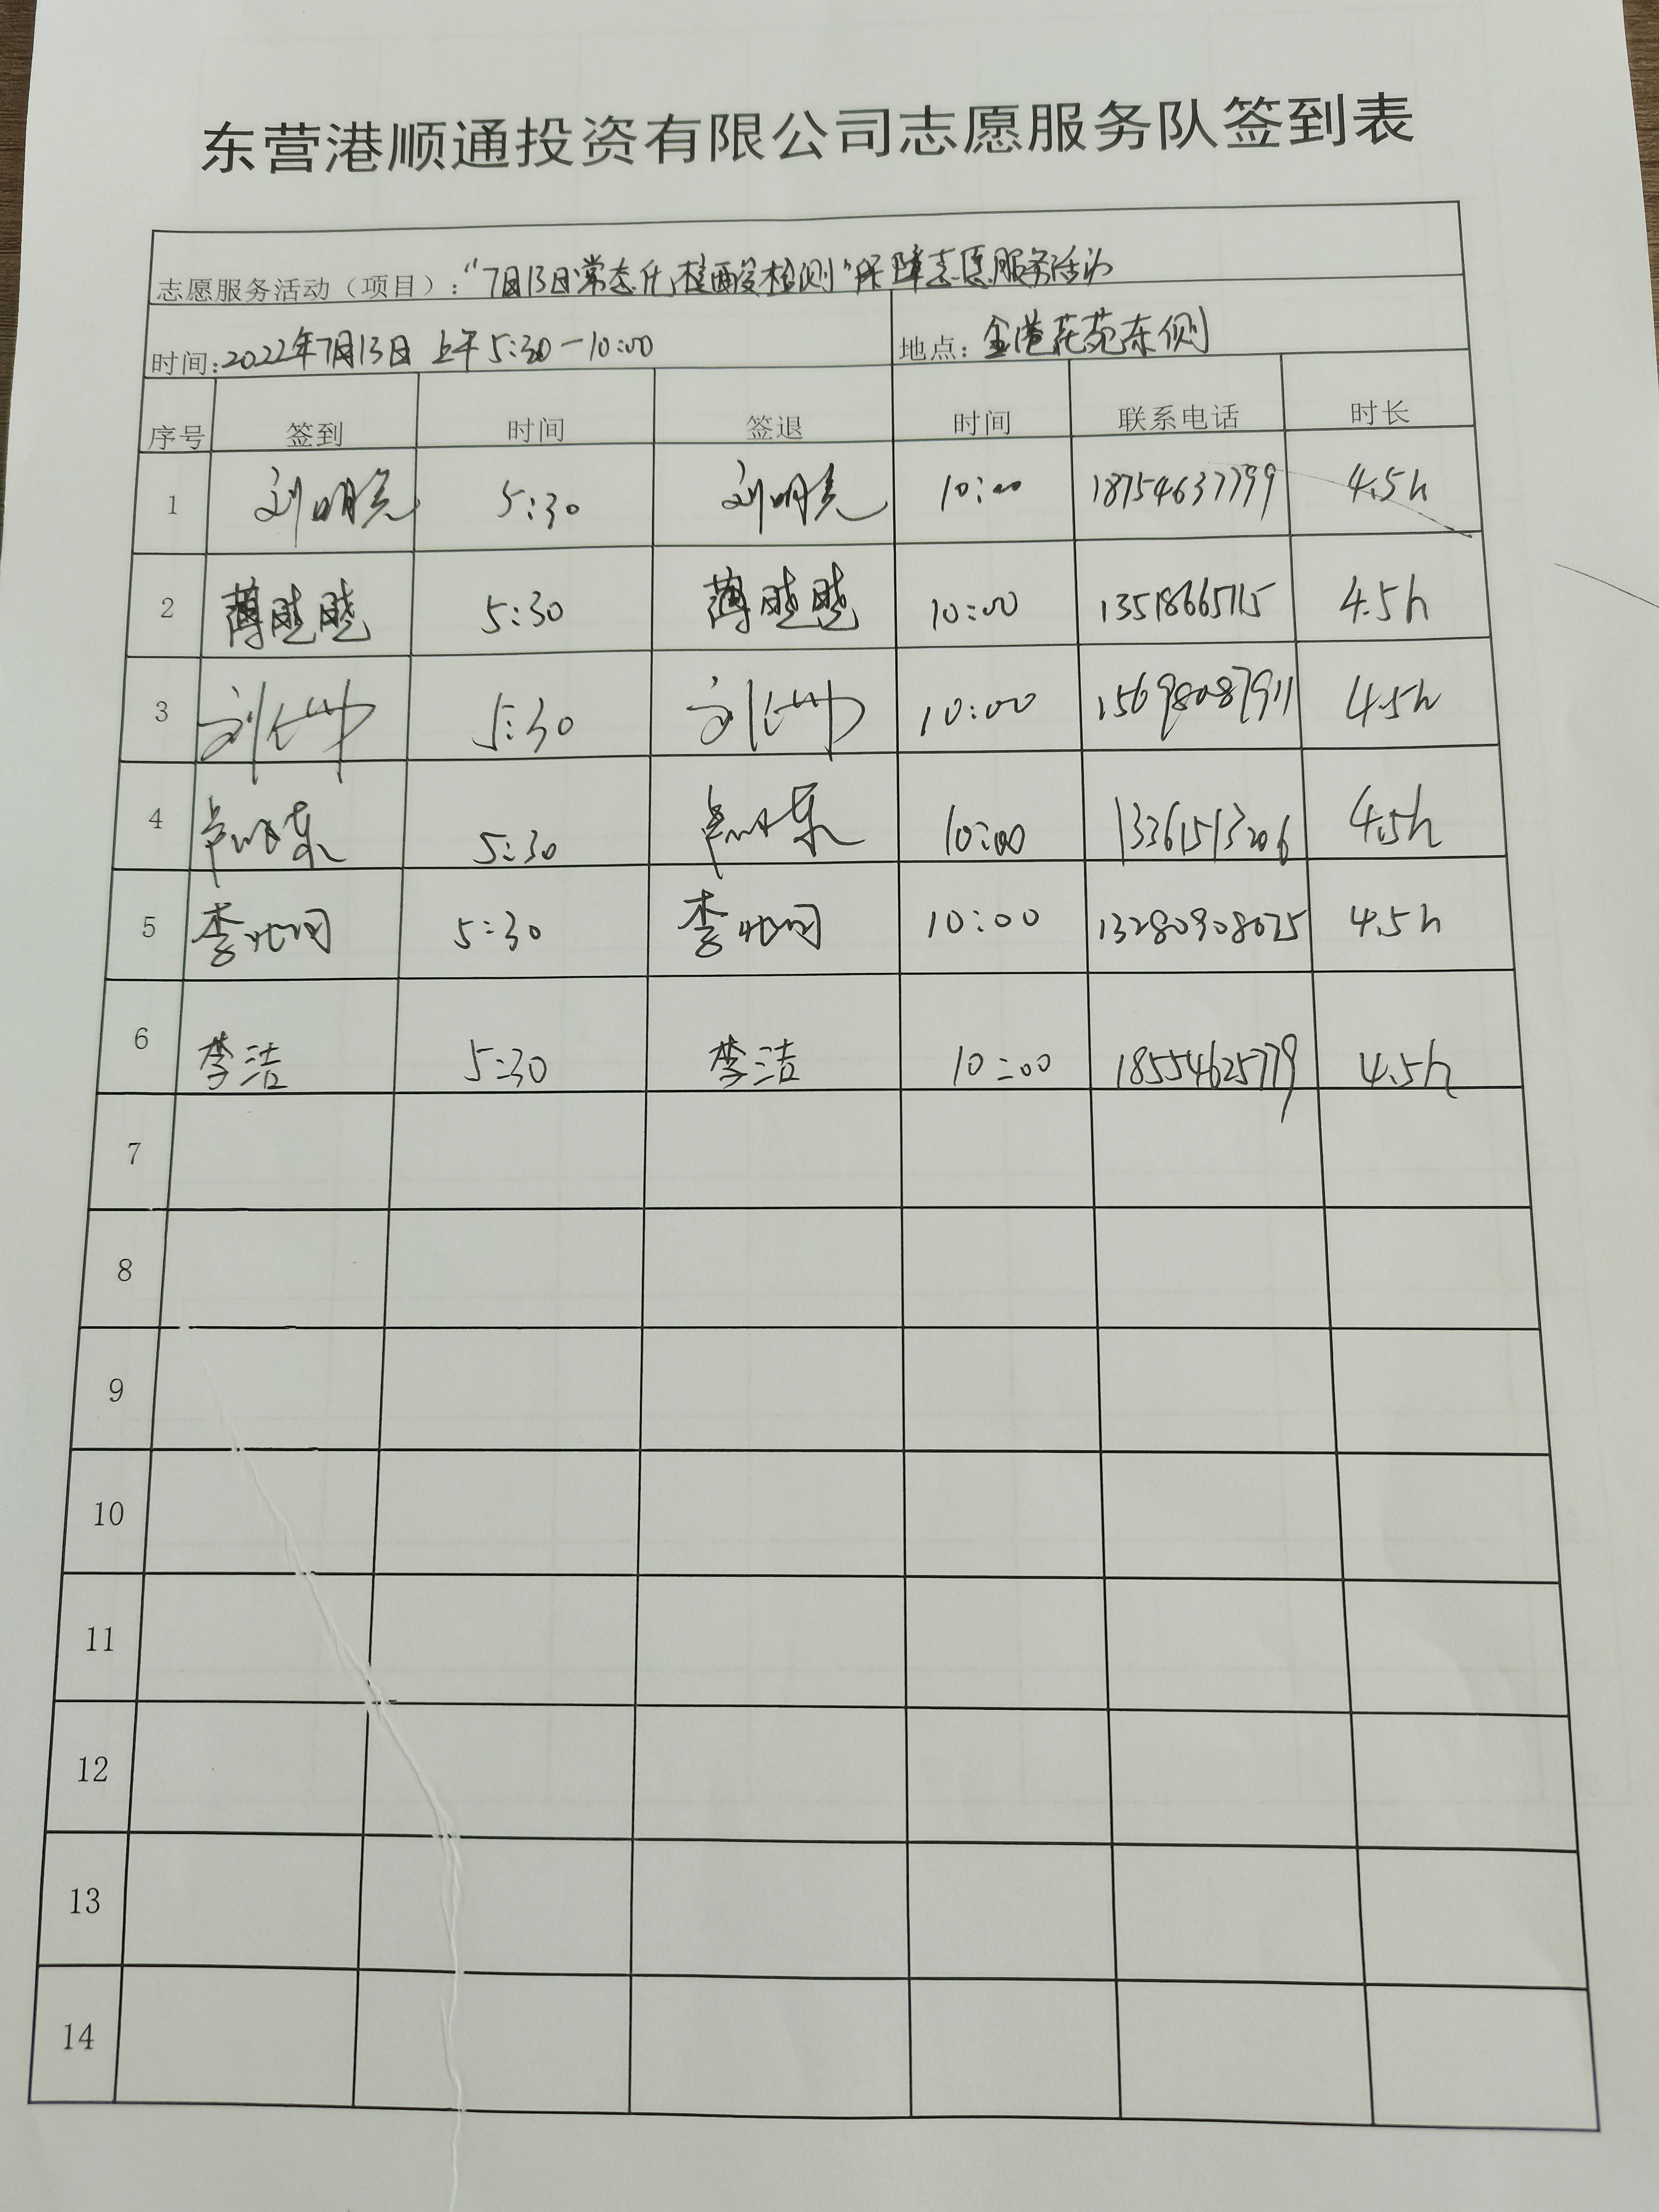 东营港顺通投资有限公司志愿服务队签到表
志愿服务活动（项目）："7月13日常态化核酸检测"保障志愿服务活动
时间：2022年7月13日 上午5:30-10:00 地点：金港花苑东侧
序号 签到 时间 签退 时间 联系电话 时长
1 刘明亮 5:30 刘明亮 10:00 18754637799 4.5h
2 薄晓晓 5:30 薄晓晓 10:00 13518665715 4.5h
3 刘 5:30 刘 10:00 15698087911 4.5h
4 5:30 10:00 13361513206 4.5h
5 李 5:30 李 10:00 13280908675 4.5h
6 李洁 5:30 李洁 10:00 18554625779 4.5h
7
8
9
10
11
12
13
14